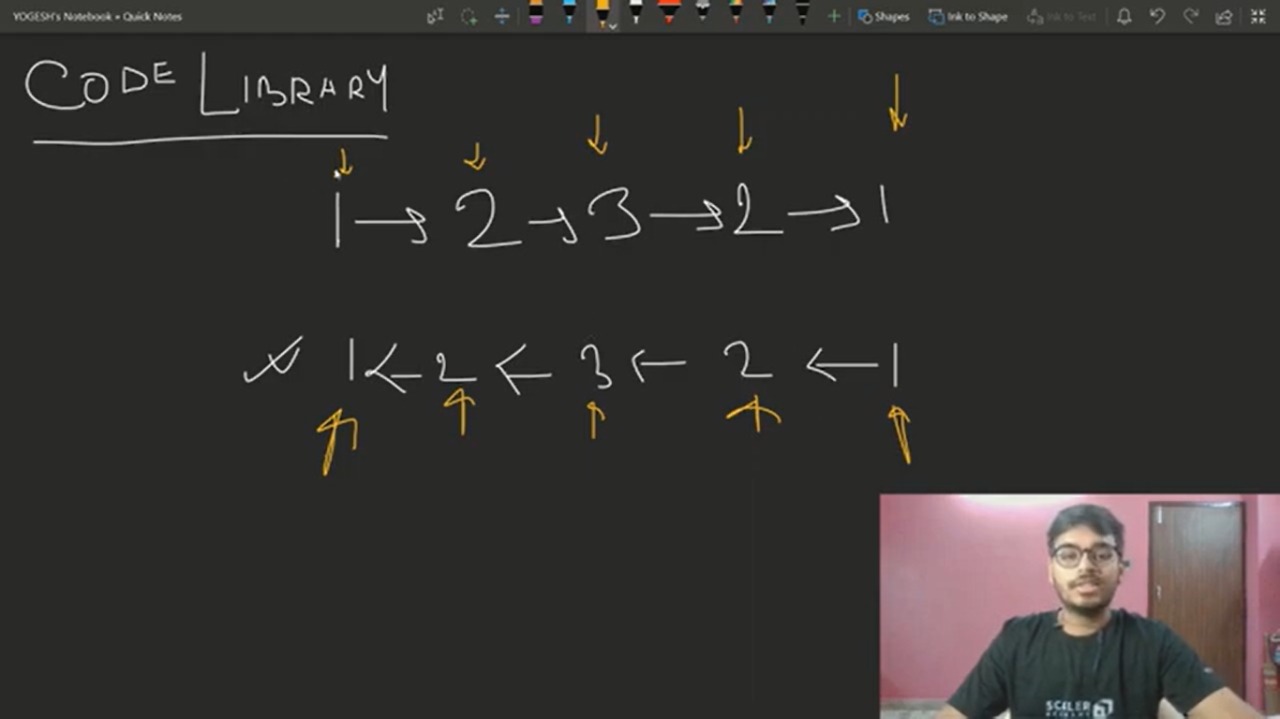 YOGESH's Notebook » Quick Notes
Shapes Ink to Shape Ink to Text
CODE LIBRARY
1 → 2 → 3 → 2 → 1
1 ← 2 ← 3 ← 2 ← 1
SCALER